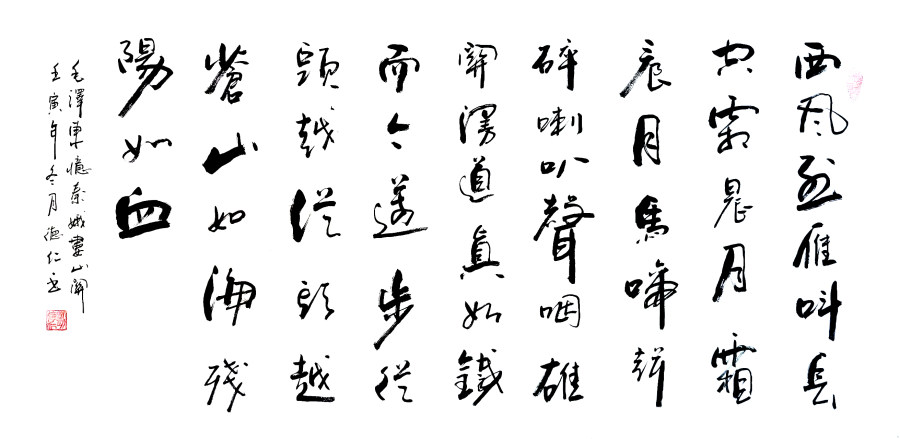 西风烈雁叫長
空霜晨月霜
晨月馬啼聲
碎喇叭聲咽雄
關漫道真如鐵
而今邁步從
頭越從頭越
蒼山如海殘
陽如血
毛澤東憶秦娥婁山關
壬寅年冬月德仁書